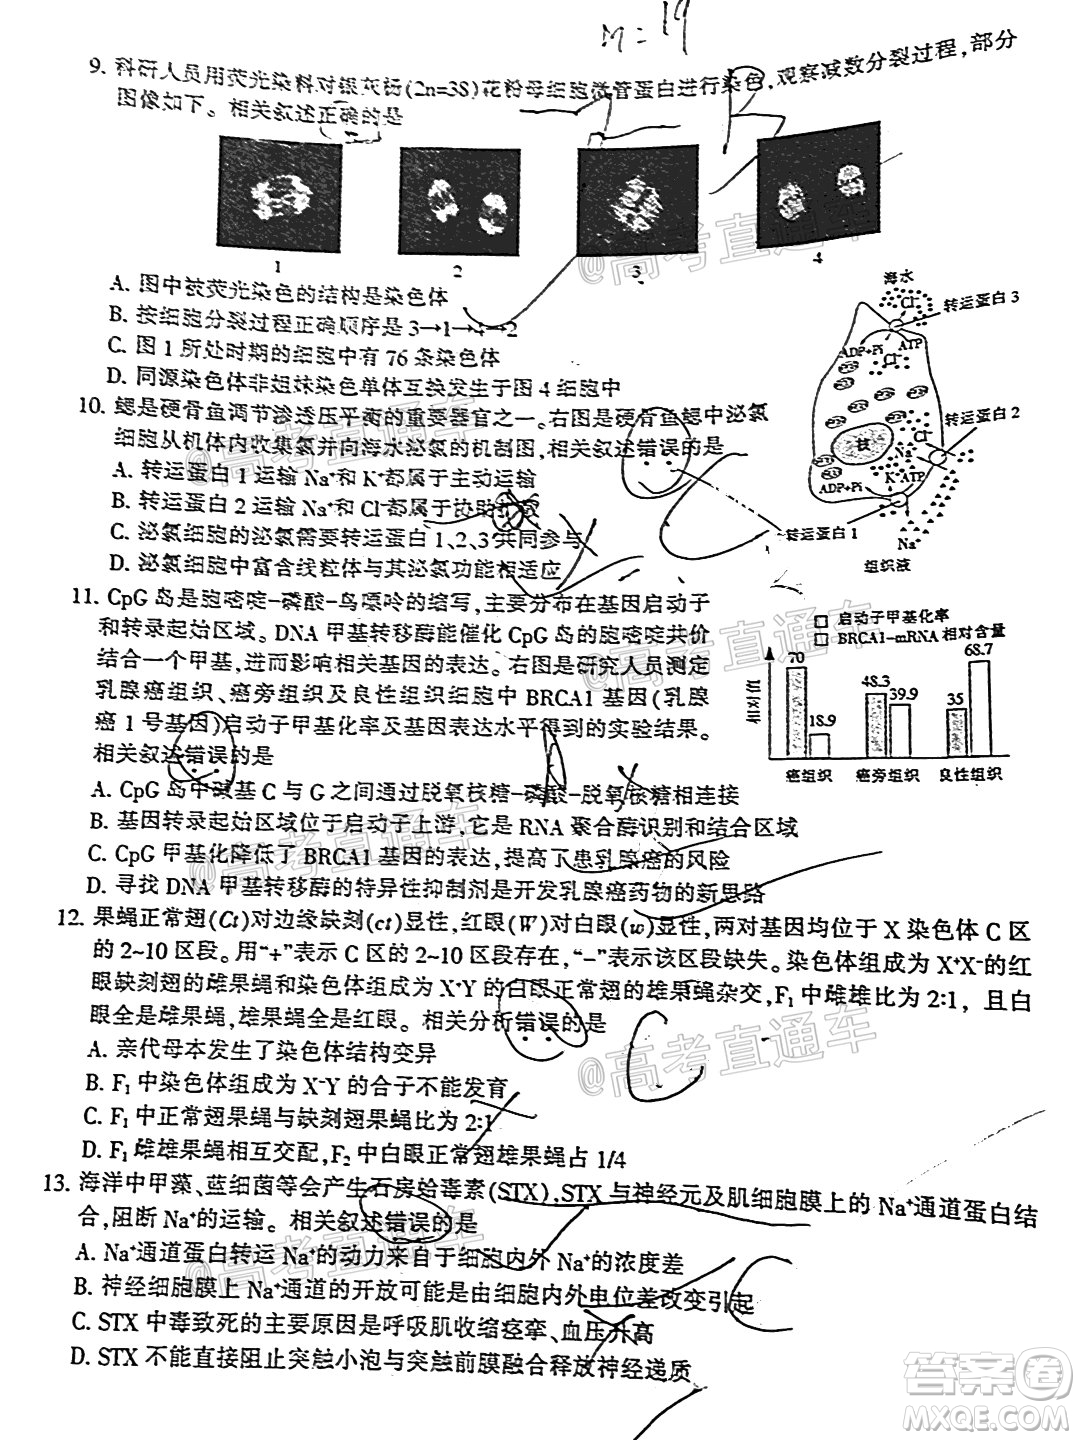 M = 19
9. 科研人员用荧光染料对银灰杨(2n=38)花粉母细胞微管蛋白进行染色,观察减数分裂过程,部分
图像如下。相关叙述正确的是
1
2
3
4
A. 图中被荧光染色的结构是染色体
B. 按细胞分裂过程正确顺序是 3→1→4→2
C. 图 1 所处时期的细胞中有 76 条染色体
D. 同源染色体非姐妹染色单体互换发生于图 4 细胞中
10. 鳃是硬骨鱼调节渗透压平衡的重要器官之一。右图是硬骨鱼鳃中泌氯
细胞从机体内收集氯并向海水泌氯的机制图,相关叙述错误的是
A. 转运蛋白 1 运输 Na⁺和 K⁺都属于主动运输
B. 转运蛋白 2 运输 Na⁺和 Cl⁻都属于协助扩散
C. 泌氯细胞的泌氯需要转运蛋白 1、2、3 共同参与
D. 泌氯细胞中富含线粒体与其泌氯功能相适应
海水
Cl⁻
转运蛋白 3
ADP+Pi
ATP
Cl⁻
转运蛋白 2
核
Cl⁻
Na⁺
K⁺
ATP
ADP+Pi
转运蛋白 1
Na⁺
组织液
11. CpG 岛是胞嘧啶-磷酸-鸟嘌呤的缩写,主要分布在基因启动子
和转录起始区域。DNA 甲基转移酶能催化 CpG 岛的胞嘧啶共价
结合一个甲基,进而影响相关基因的表达。右图是研究人员测定
乳腺癌组织、癌旁组织及良性组织细胞中 BRCA1 基因(乳腺
癌 1 号基因)启动子甲基化率及基因表达水平得到的实验结果。
相关叙述错误的是
启动子甲基化率
BRCA1-mRNA 相对含量
70
18.9
48.3
39.9
35
68.7
癌组织
癌旁组织
良性组织
A. CpG 岛中碱基 C 与 G 之间通过脱氧核糖-磷酸-脱氧核糖相连接
B. 基因转录起始区域位于启动子上游,它是 RNA 聚合酶识别和结合区域
C. CpG 甲基化降低了 BRCA1 基因的表达,提高了患乳腺癌的风险
D. 寻找 DNA 甲基转移酶的特异性抑制剂是开发乳腺癌药物的新思路
12. 果蝇正常翅(Ct)对边缘缺刻(ct)显性,红眼(W)对白眼(w)显性,两对基因均位于 X 染色体 C 区
的 2~10 区段。用“+”表示 C 区的 2~10 区段存在,“-”表示该区段缺失。染色体组成为 X⁺X⁻的红
眼缺刻翅的雌果蝇和染色体组成为 X⁺Y 的白眼正常翅的雄果蝇杂交,F₁ 中雌雄比为 2∶1, 且白
眼全是雌果蝇,雄果蝇全是红眼。相关分析错误的是
A. 亲代母本发生了染色体结构变异
B. F₁ 中染色体组成为 X⁻Y 的合子不能发育
C. F₁ 中正常翅果蝇与缺刻翅果蝇比为 2∶1
D. F₁ 雌雄果蝇相互交配,F₂ 中白眼正常翅雄果蝇占 1/4
13. 海洋中甲藻、蓝细菌等会产生石房蛤毒素(STX),STX 与神经元及肌细胞膜上的 Na⁺通道蛋白结
合,阻断 Na⁺的运输。相关叙述错误的是
A. Na⁺通道蛋白转运 Na⁺的动力来自于细胞内外 Na⁺的浓度差
B. 神经细胞膜上 Na⁺通道的开放可能是由细胞内外电位差改变引起
C. STX 中毒致死的主要原因是呼吸肌收缩痉挛、血压升高
D. STX 不能直接阻止突触小泡与突触前膜融合释放神经递质
@高考直通车
@高考直通车
@高考直通车
@高考直通车
@高考直通车
@高考直通车
答案圈
MXQE.COM